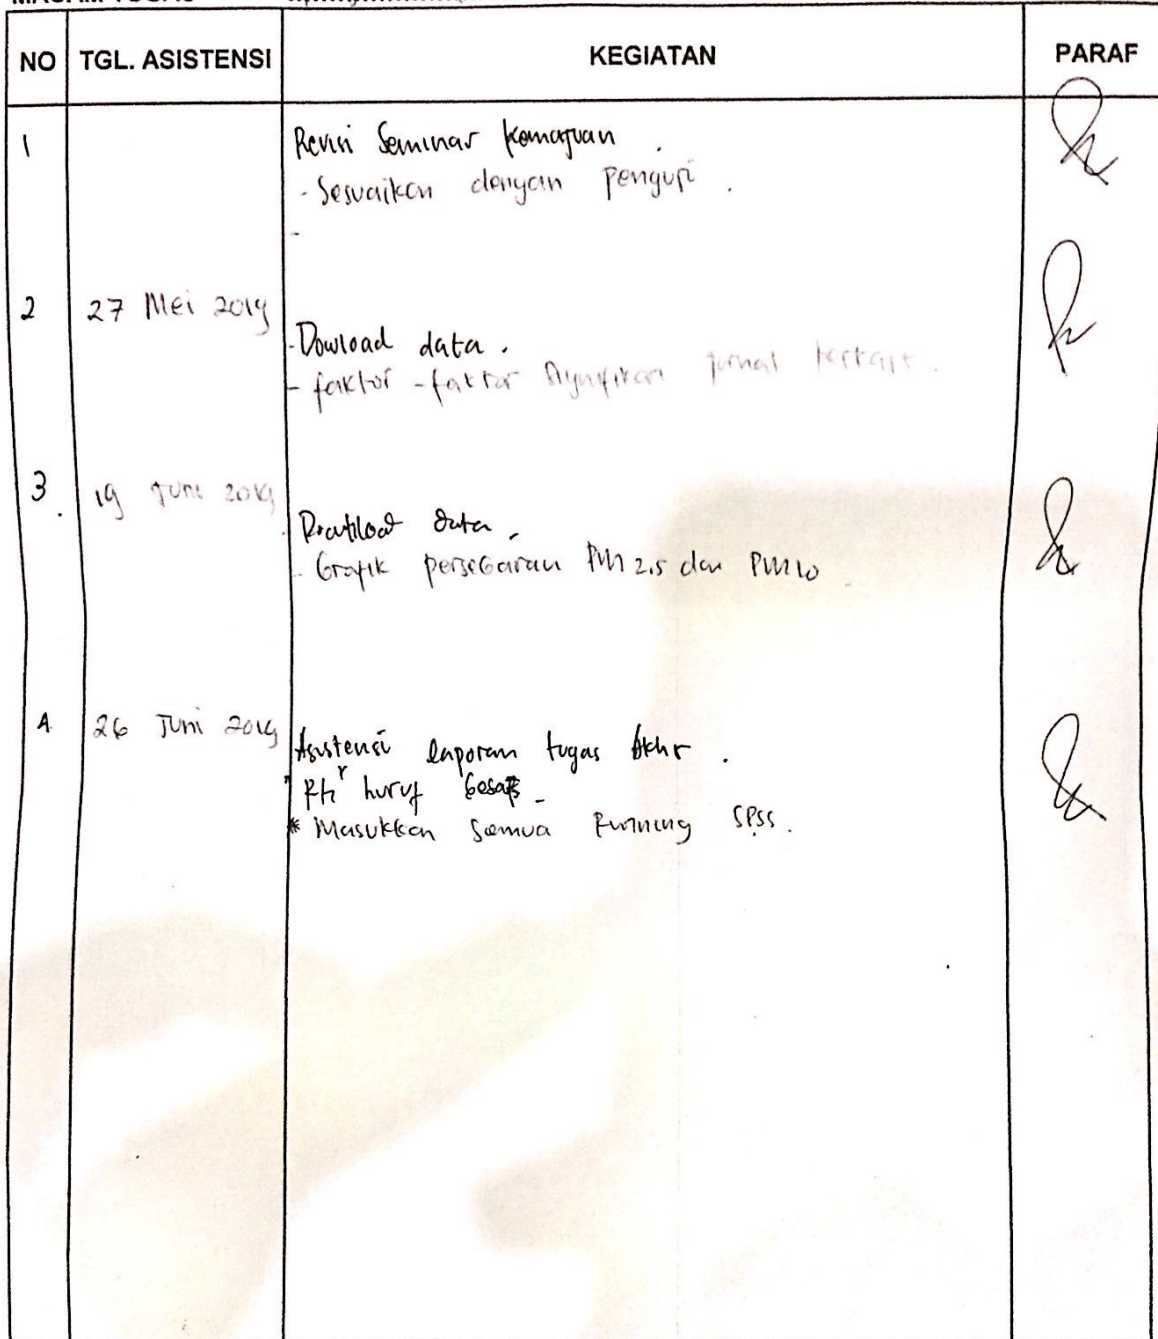 NO TGL. ASISTENSI KEGIATAN PARAF
1 Revisi Seminar Kemajuan.
- Sesuaikan dengan Penguji.
-
2 27 Mei 2019
- Dowload data.
- faktor-faktor jurnal terkait.
3. 19 Juni 2019
data.
- Grafik persebaran PM 2.5 dan PM10
4. 26 Juni 2019
Asistensi laporan tugas Akhr.
huruf besar
* Masukkan Semua Running SPSS.